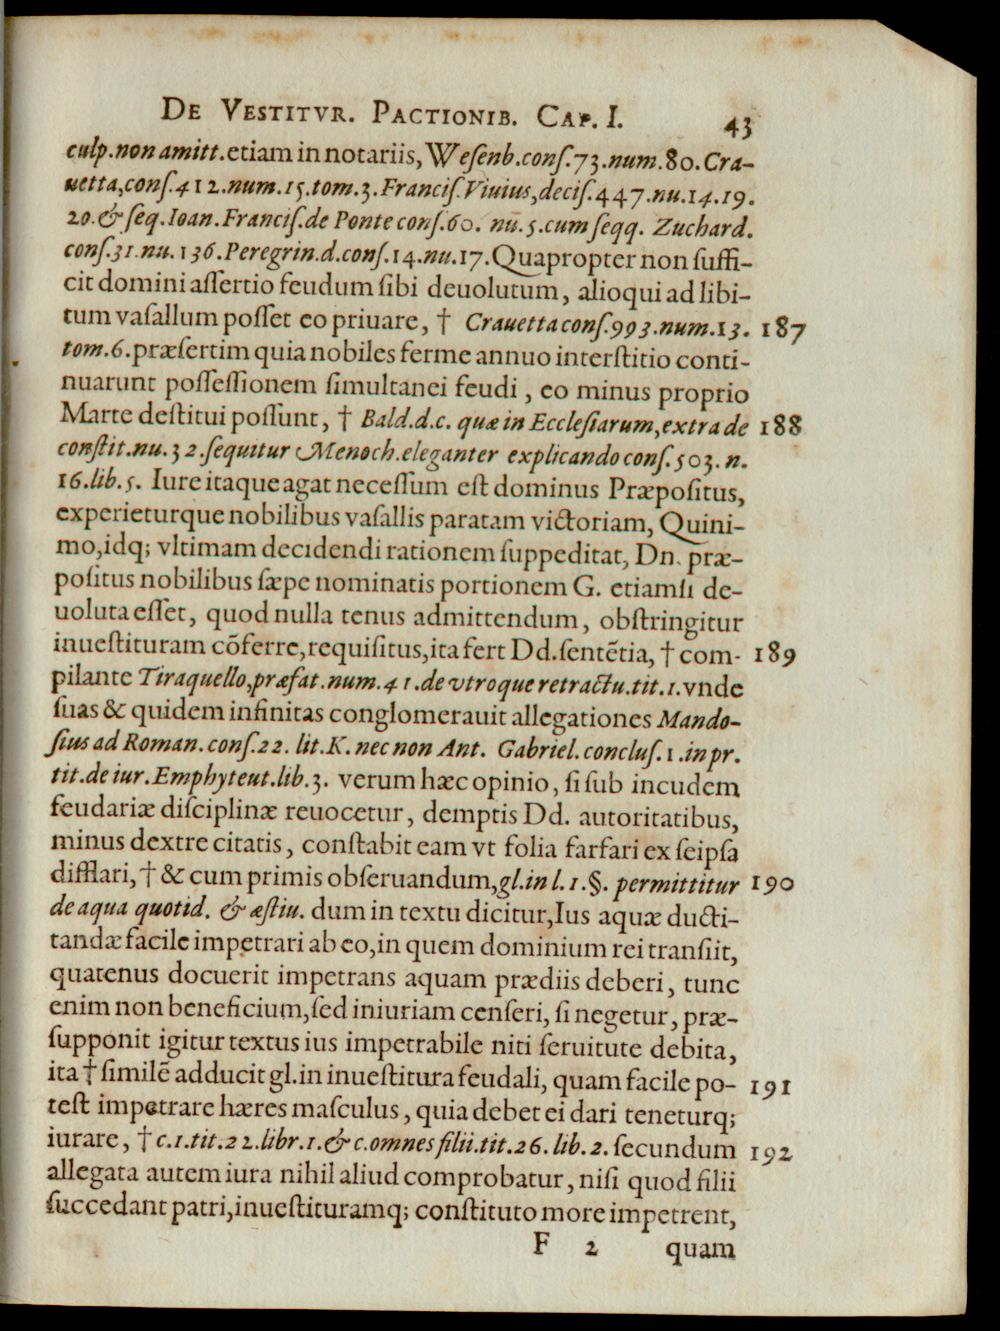 De Vestitvr. Pactionib. Cap. I. 43
culp.non amitt.etiam in notariis, Wesenb.cons.73.num.80.Cra-
uetta,cons.412.num.15.tom.3.Francis.Viuius,decis.447.nu.14.19.
20.& seq.Ioan.Francis.de Ponte cons.60. nū.5.cum seqq. Zuchard.
cons.31.nu.136.Peregrin.d.cons.14.nu.17.Quapropter non suffi-
cit domini assertio feudum sibi deuolutum, alioqui ad libi-
tum vasallum posset eo priuare, † Crauetta cons.993.num.13. 187
tom.6.præsertim quia nobiles ferme annuo interstitio conti-
nuarunt possessionem simultanei feudi, eo minus proprio
Marte destitui possunt, † Bald.d.c. quæ in Ecclesiarum,extra de 188
constit.nu.32.sequitur Menoch.eleganter explicando cons.503. n.
16.lib.5. Iure itaque agat necessum est dominus Præpositus,
experieturque nobilibus vasallis paratam victoriam, Quini-
mo,idq; vltimam decidendi rationem suppeditat, Dn. præ-
positus nobilibus sæpe nominatis portionem G. etiamsi de-
uoluta esset, quod nulla tenus admittendum, obstringitur
inuestituram cōferre,requisitus,ita fert Dd.sentētia, † com- 189
pilante Tiraquello,præfat.num.41.de vtroque retractu.tit.1.vnde
suas & quidem infinitas conglomerauit allegationes Mando-
sius ad Roman.cons.22. lit.K. nec non Ant. Gabriel.conclus.1.in pr.
tit.de iur.Emphyteut.lib.3. verum hæc opinio, si sub incudem
feudariæ disciplinæ reuocetur, demptis Dd. autoritatibus,
minus dextre citatis, constabit eam vt folia farfari ex seipsa
difflari, † & cum primis obseruandum,gl.in l.1.§. permittitur 190
de aqua quotid. & æstiu. dum in textu dicitur,Ius aquæ ducti-
tandæ facile impetrari ab eo,in quem dominium rei transiit,
quatenus docuerit impetrans aquam prædiis deberi, tunc
enim non beneficium,sed iniuriam censeri, si negetur, præ-
supponit igitur textus ius impetrabile niti seruitute debita,
ita † similē adducit gl.in inuestitura feudali, quam facile po- 191
test impetrare hæres masculus, quia debet ei dari teneturq;
iurare, † c.1.tit.22.libr.1.& c.omnes filii.tit.26.lib.2. secundum 192
allegata autem iura nihil aliud comprobatur, nisi quod filii
succedant patri,inuestituramq; constituto more impetrent,
F 2 quam